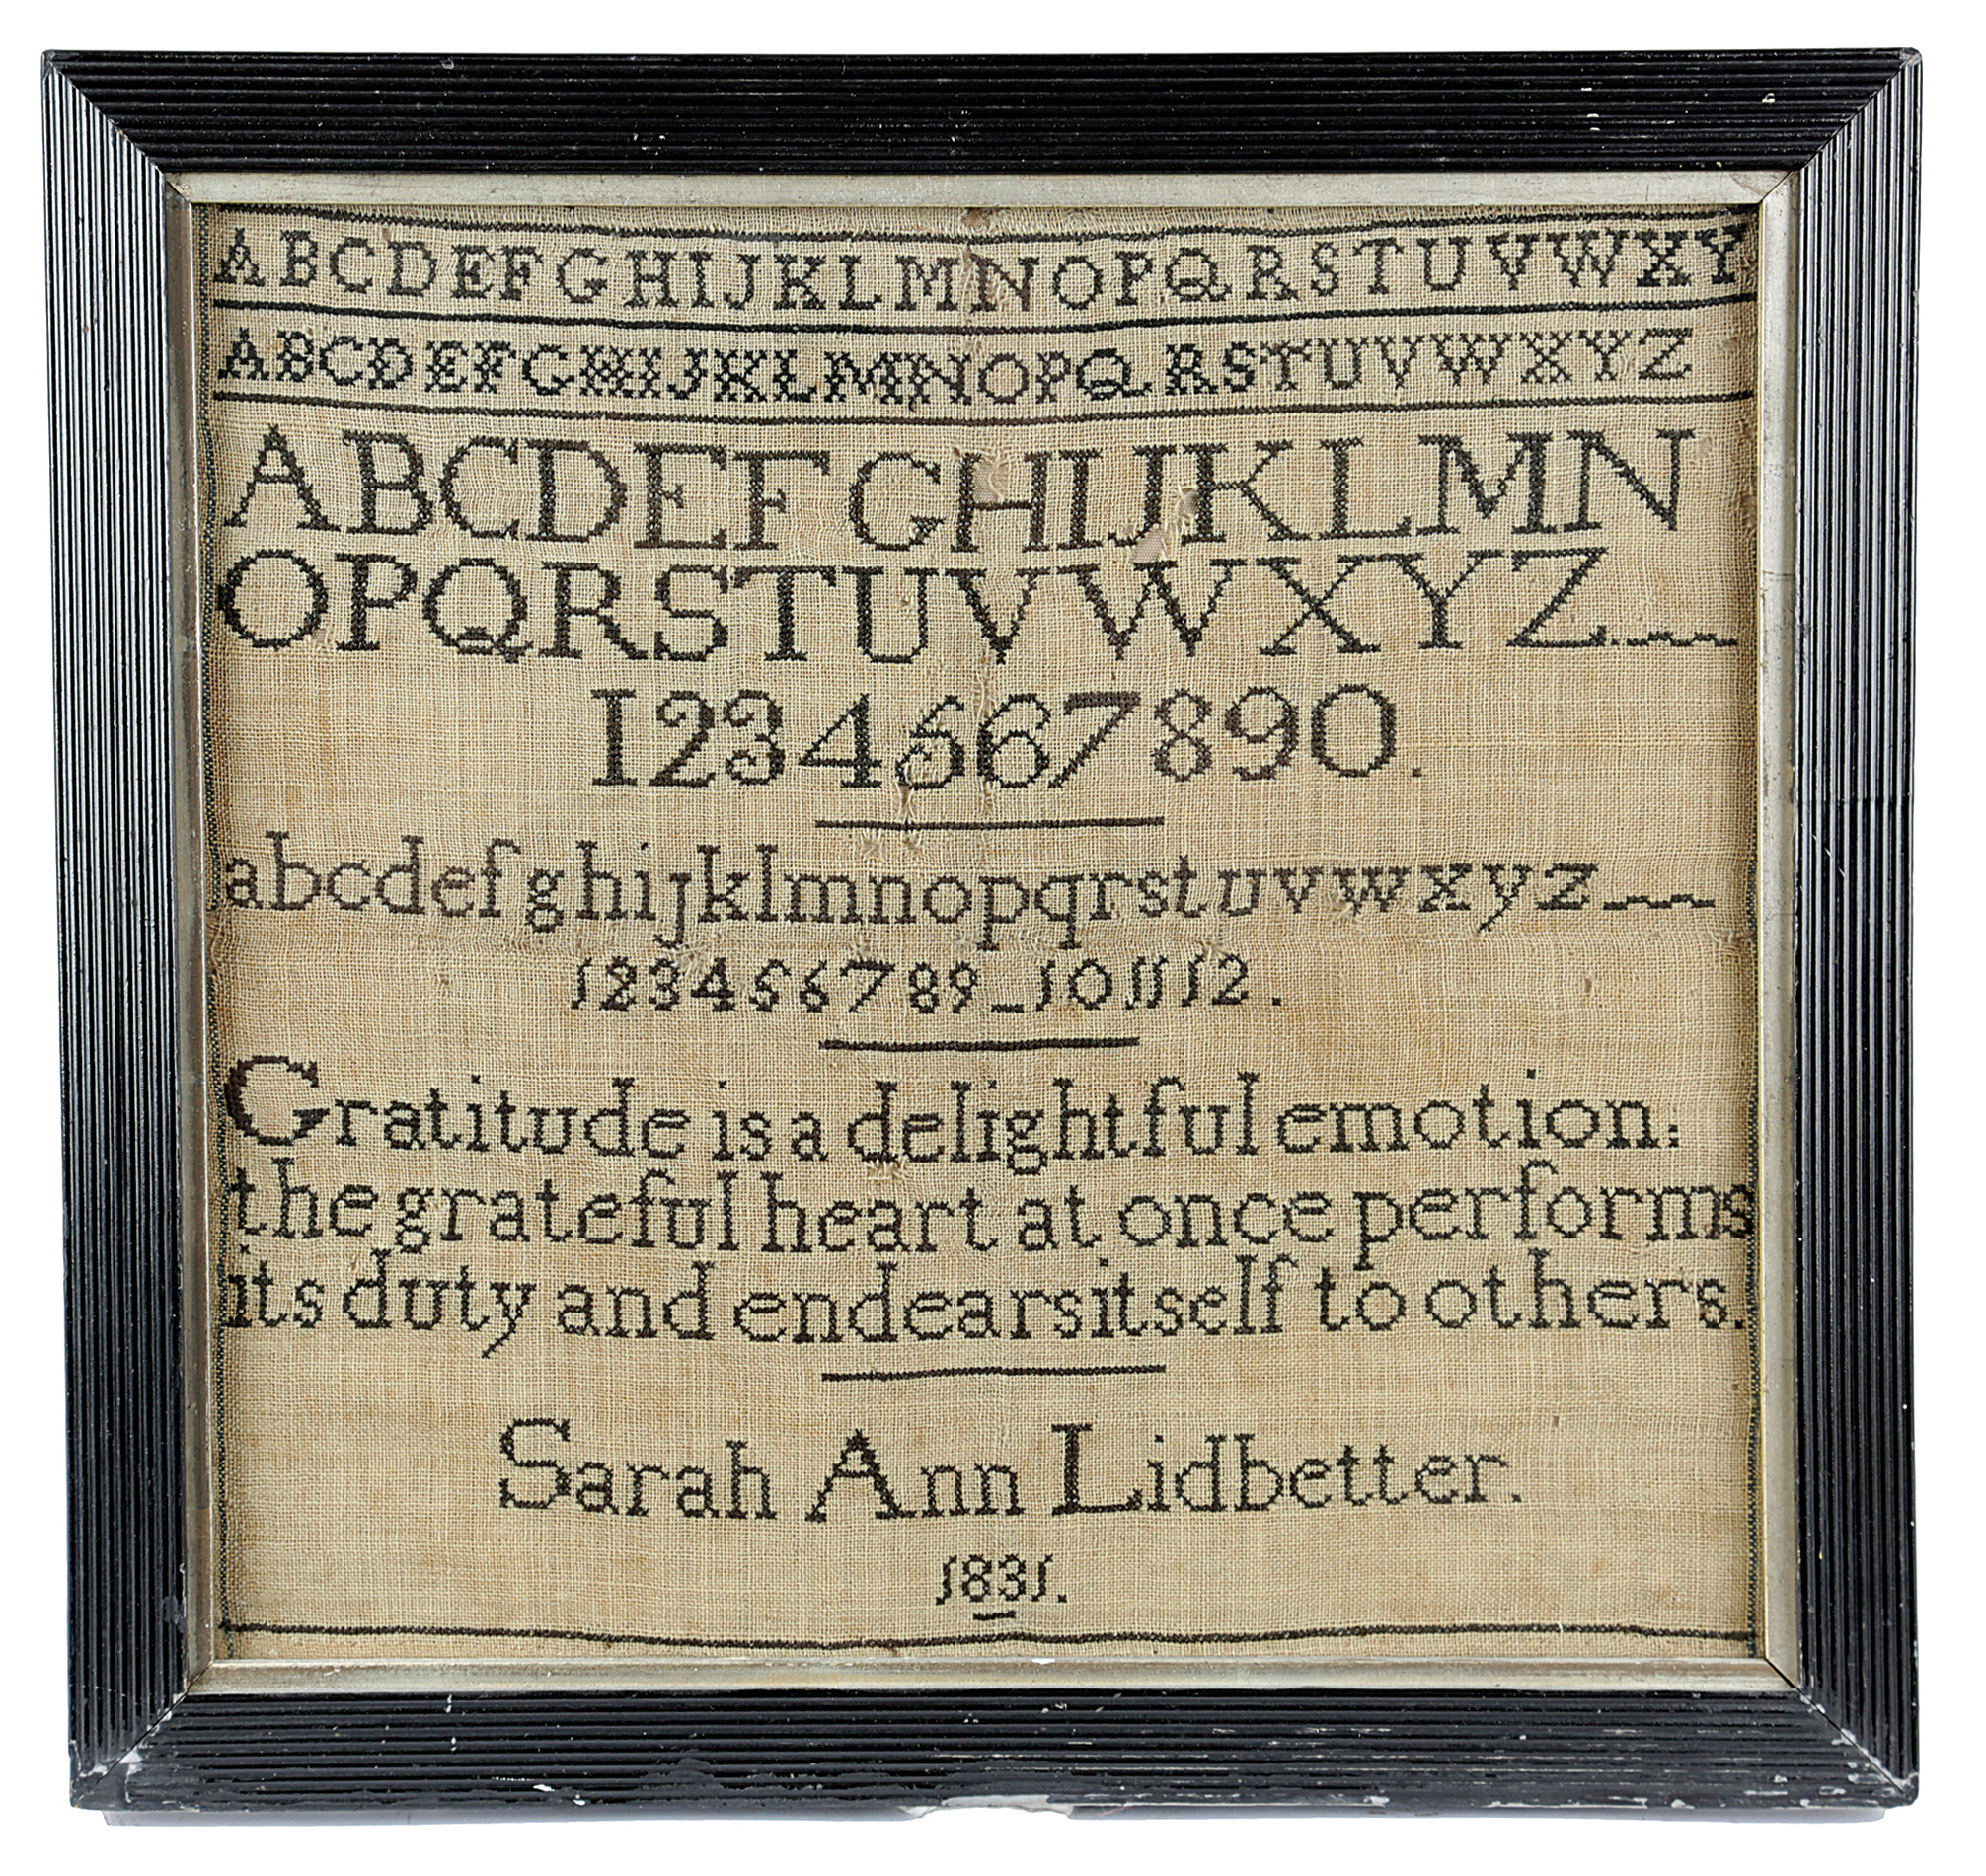 ABCDEFGHIJKLMNOPQRSTUVWXY
ABCDEFGHIJKLMNOPQRSTUVWXYZ
ABCDEFGHIJKLMN
OPQRSTUVWXYZ.
1234567890.
abcdefghijklmnopqrstuvwxyz
123456789_101112.
Gratitude is a delightful emotion:
the grateful heart at once performs
its duty and endears itself to others.
Sarah Ann Lidbetter.
1831.